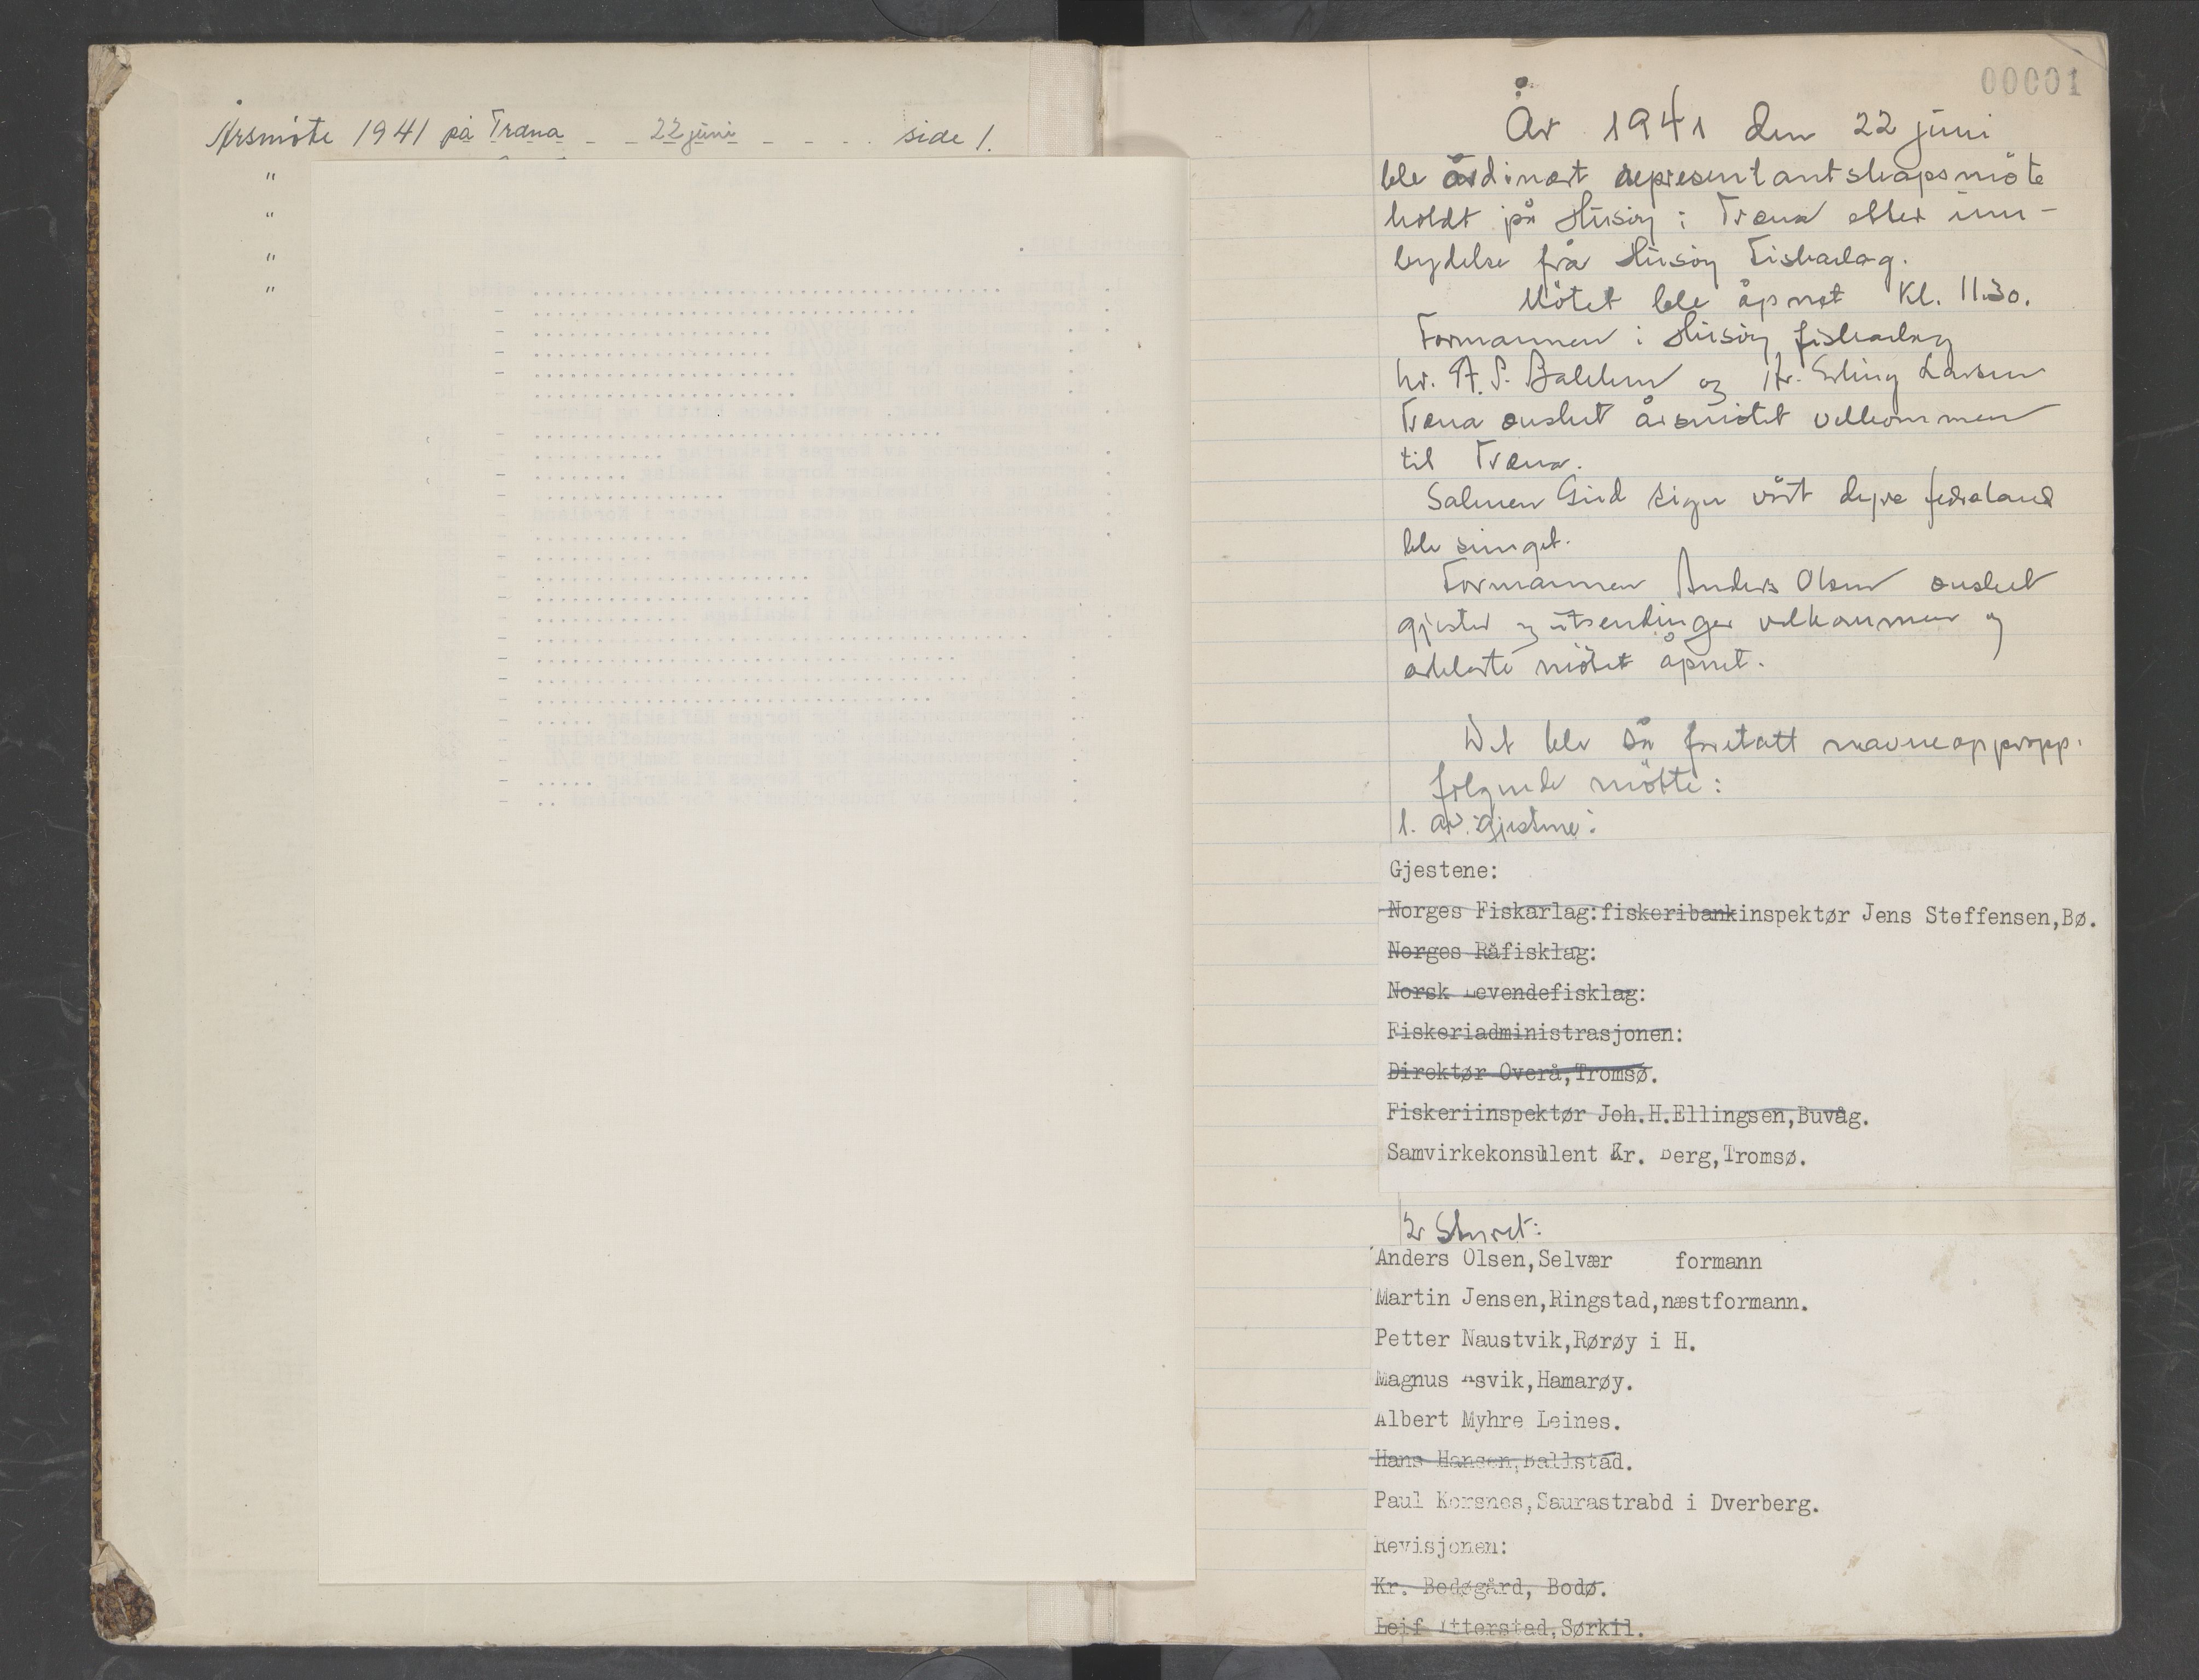 Årsmöte 1941 på Træna - - 22 juni - - - . . side 1.
"
"
"
"
00001
År 1941 den 22 juni
ble ordinært representantskapsmöte
holdt på Husöy i Træna etter inn-
bydelse frå Husöy Fiskarlag.
Mötet ble åpnet Kl. 11.30.
Formannen i Husöy fiskarlag
hr. A. S. og Hr. Erling Larsen
Træna ønsket årsmötet velkommen
til Træna.
Salmen Gud signe vårt dyre fedreland
ble sunget.
Formannen Anders Olsen ønsket
gjester og utsendinger velkommen og
erklærte mötet åpnet.
Det ble så foretatt navneoppropp.
følgende mötte:
1. av gjestene:
Gjestene:
Norges Fiskarlag:fiskeribankinspektør Jens Steffensen,Bø.
Norges Råfisklag:
Norsk Levendefisklag:
Fiskeriadministrasjonen:
Direktør Overå,Tromsø.
Fiskeriinspektør Joh.H.Ellingsen,Buvåg.
Samvirkekonsulent Kr. Berg,Tromsø.
2. Styret:
Anders Olsen,Selvær formann
Martin Jensen,Ringstad,næstformann.
Petter Naustvik,Rørøy i H.
Magnus Asvik,Hamarøy.
Albert Myhre Leines.
Hans Hansen,Ballstad.
Paul Korsnes,Saurastrabd i Dverberg.
Revisjonen:
Kr. Bodøgård, Bodø.
Leif Itterstad,Sørkil.